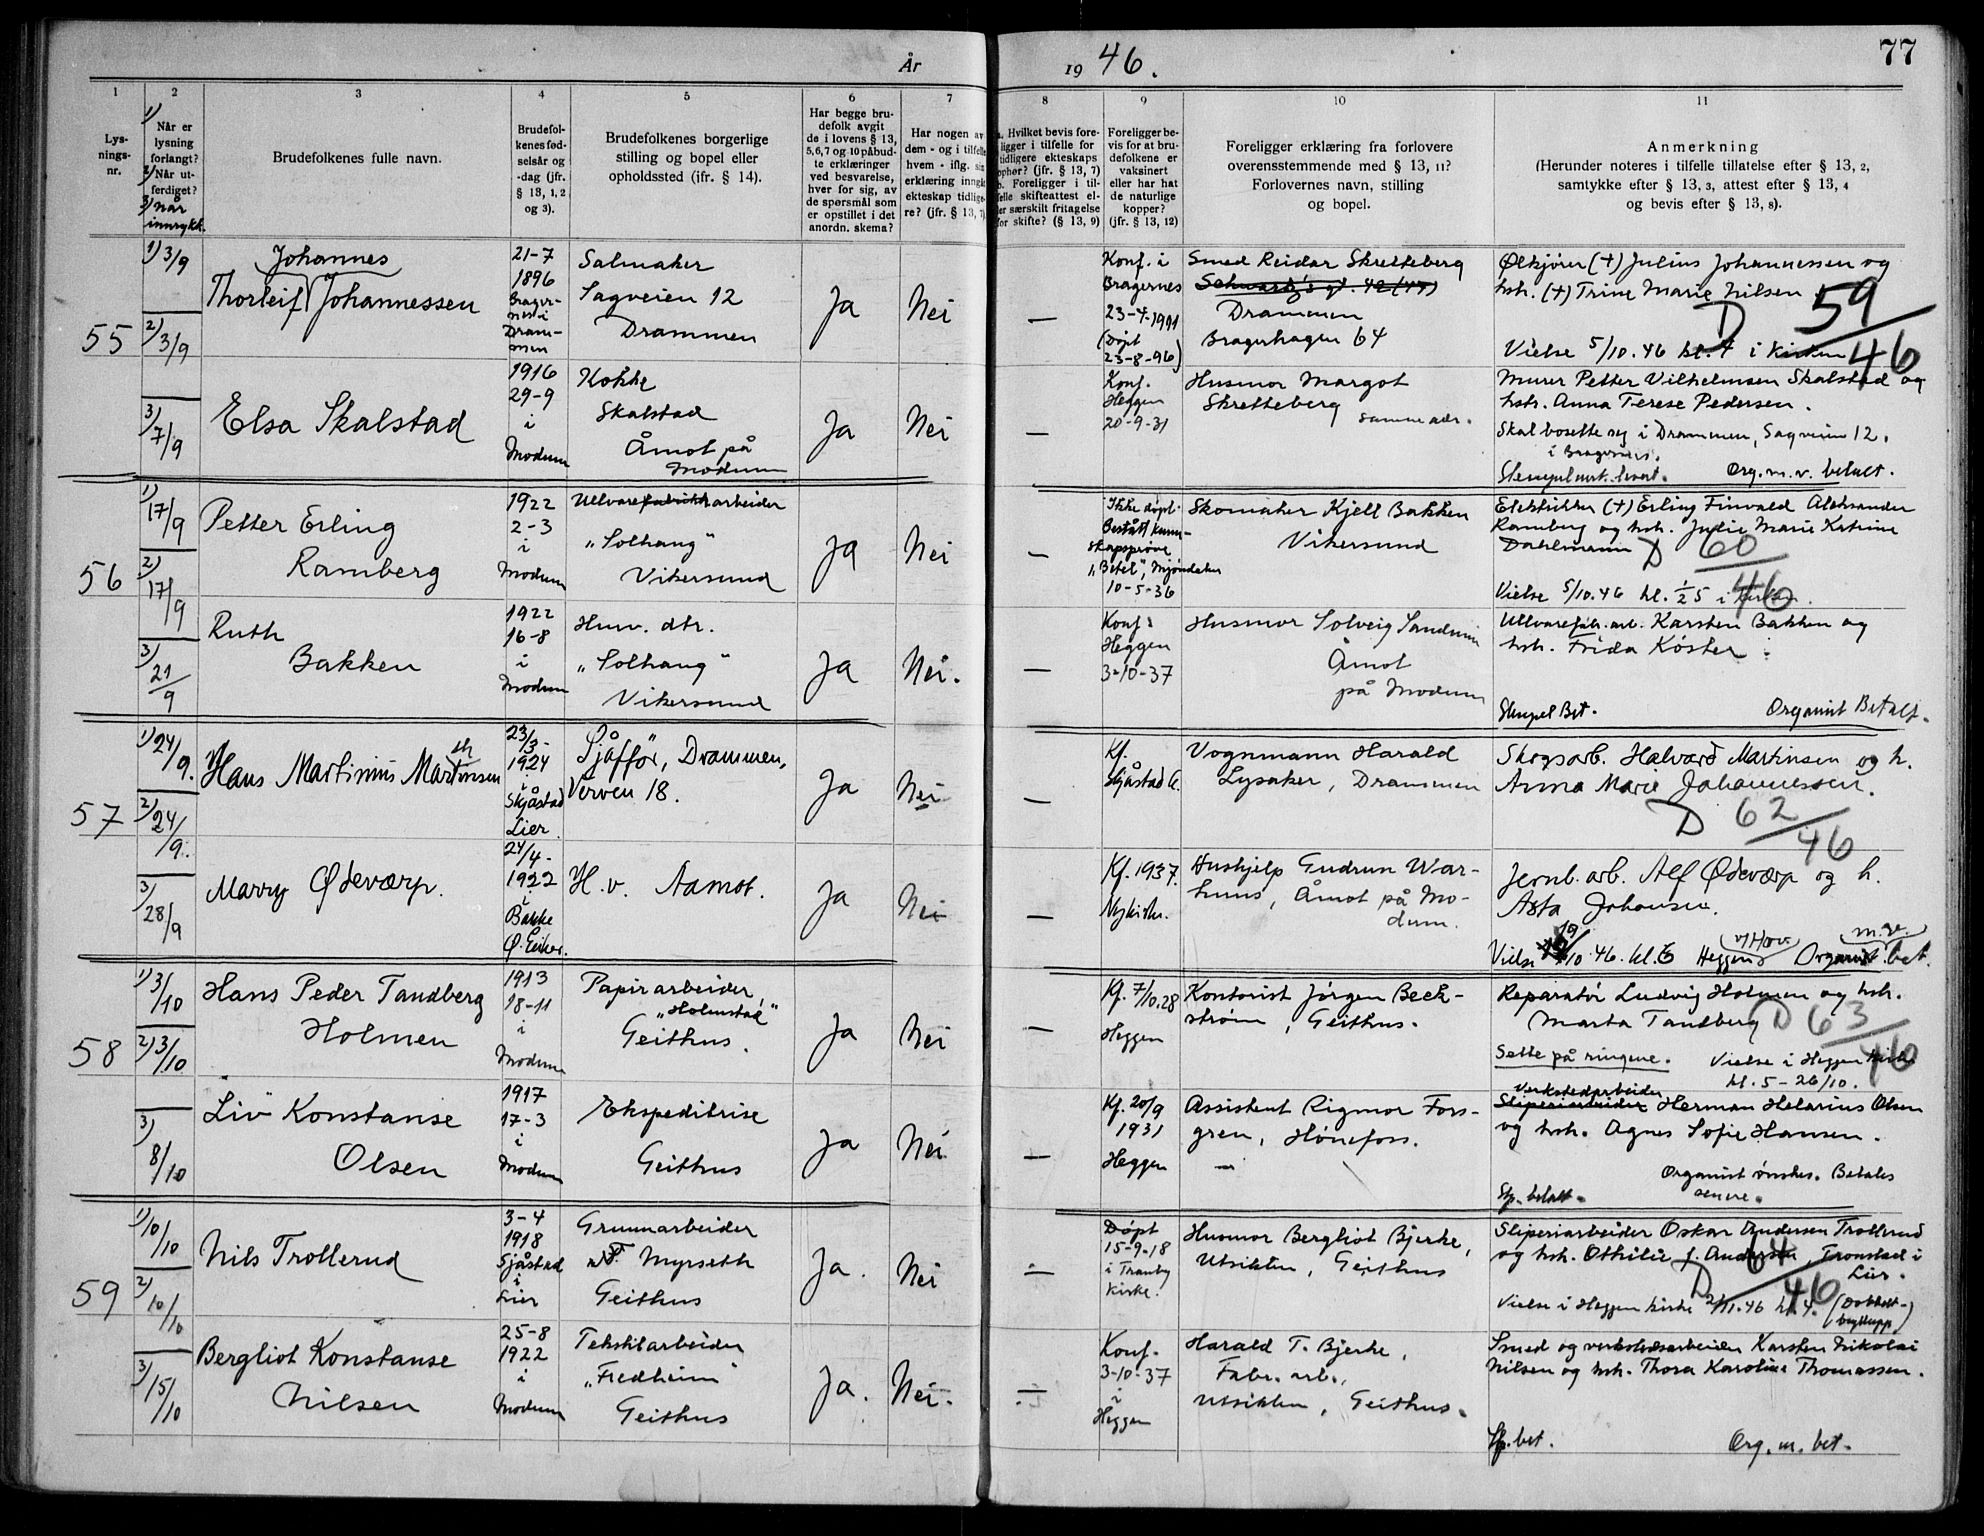 År 1946.
77
1 2 3 4 5 6 7 8 9 10 11
Lysnings-nr.
1) Når er lysning forlangt?
2) Når utferdiget?
3) når innrykk.
Brudefolkenes fulle navn.
Brudefolkenes fødselsår og -dag (jfr. § 13, 1, 2 og 3).
Brudefolkenes borgerlige stilling og bopel eller opholdssted (ifr. § 14).
Har begge brudefolk avgit de i lovens § 13, 5,6,7 og 10 påbudte erklæringer ved besvarelse, hver for sig, av de spørsmål som er opstillet i det anordn. skema?
Har nogen av dem - og i tilfelle hvem - iflg. sin erklæring inngått ekteskap tidligere? (jfr. § 13, 7)
a. Hvilket bevis foreligger i tilfelle for tidligere ekteskaps ophør? (jfr. § 13, 7)
b. Foreligger i tilfelle skifteattest eller særskilt fritagelse for skifte? (§ 13, 9)
Foreligger bevis for at brudefolkene er vaksinert eller har hat de naturlige kopper? (jfr. § 13, 12)
Foreligger erklæring fra forlovere overensstemmende med § 13, 11? Forlovernes navn, stilling og bopel.
Anmerkning
(Herunder noteres i tilfelle tillatelse efter § 13, 2, samtykke efter § 13, 3, attest efter § 13, 4 og bevis efter § 13, 8).
55
1) 3/9
2) 3/9
3) 7/9
Johannes
Thorleif Johannessen
21-7
1896
Bragernes i
Drammen
Salmaker
Sagveien 12
Drammen
Ja
Nei
—
Konf. i
Bragernes
23-4-1911
(Døpt
23-8-96)
Smed Reidar Skretteberg
Schwartz's gt. 42 (44)
Drammen
Bragerhagen 64
Ølkjører (+) Julius Johannessen og
hstr. (+) Trine Marie Nilsen
D 59/46
Vielse 5/10.46 kl. 4 i kirken
Elsa Skalstad
1916
29-9
i
Modum
Kokke
Skalstad
Åmot på
Modum
Ja
Nei
—
Konf.
Heggen
20-9-31
Husmor Margot
Skretteberg samme adr.
Murer Petter Vilhelmsen Skalstad og
hstr. Anna Terese Pedersen.
Skal bosette seg i Drammen, Sagveien 12.
i Bragernes.
Org. m. v. betalt.
56
1) 17/9
2) 17/9
3) 21/9
Petter Erling
Ramberg
1922
2-3
i
Modum
Ullvarefabrikkarbeider
"Solhaug"
Vikersund
Ja
Nei
—
Ikke døpt.
Bestått kunnskapsprøve
"Betel", Mjøndalen
10-5-36
Skomaker Kjell Bakken
Vikersund
Elektriker (+) Erling Finvald Aleksander
Ramberg og hstr. Julie Marie Katrine
Dahlmann D 60/46
Vielse 5/10.46 kl. 1/2 5 i kirken.
Ruth
Bakken
1922
16-8
i
Modum
Husv. dtr.
"Solhaug"
Vikersund
Ja
Nei.
—
Konf:
Heggen
3-10-37
Husmor Solveig Sandum
Åmot
på Modum
Ullvarefabr.arb. Karsten Bakken og
hstr. Frida Köster.
Stempel Bet.
Organist Betalt.
57
1) 24/9.
2) 24/9.
3) 28/9
Hans Martinius Marthinsen
23/3-
1924
i
Skjåstad
Lier.
Sjåffør, Drammen,
Verven 18.
Ja
Nei
—
Kf.
Sjåstad k.
Vognmann Harald
Lysaker, Drammen
Skogsarb. Halvard Martinsen og h.
Anna Marie Johannessen.
D 62/46
Marry Ødeværp.
24/4-
1922
i
Bakke
Ø. Eiker.
H.v. Aamot.
Ja
Nei
—
Kf. 1937.
Nykirke.
Hushjelp Gudrun Warhuus, Åmot på Modum.
Jernb. arb. Alf Ødeværp og h.
Asta Johansen.
Vielse 19/10.46. kl. 6 Heggen v/Hov. Organist m.v. bet.
58
1) 3/10
2) 3/10
3) 8/10
Hans Peder Tandberg
Holmen
1913
18-11
i
Modum
Papirarbeider,
"Holmstad"
Geithus.
Ja
Nei
—
Kf. 7/10.28
Heggen
Kontorist Jørgen Beckstrøm, Geithus.
Reparatør Ludvig Holmen og hstr.
Marta Tandberg D 63/46
Sette på ringene. Vielse i Heggen kirke
kl. 5 - 26/10.
Liv Konstanse
Olsen
1917
17-3
i
Modum
Ekspeditrise
Geithus
Ja
Nei
—
Kf. 20/9
1931
Heggen
Assistent Rigmor Forsgren, Hønefoss.
—
Verkstedarbeider
Sliperiarbeider Herman Helarius Olsen
og hstr. Agnes Sofie Hansen.
Organist ønskes. Betales
senere.
Stp. betalt.
59
1) 10/10
2) 10/10
3) 15/10
Nils Trollerud
3-4
1918
Sjåstad
i
Lier
Gruvearbeider
Myrseth
Geithus
Ja.
Nei
—
Døpt
15-9-18
i Tranby
kirke.
Husmor Bergliot Bjerke,
Utsikten, Geithus
Sliperiarbeider Oskar Andersen Trollerud
og hstr. Othilie f. Andersen, Tronstad i
Lier.
D 64/46
Vielse i Heggen kirke 2/11.46 kl. 4. (Dobbelt-
bryllupp)
Bergliot Konstanse
Nilsen
25-8
1922
i
Modum
Tekstilarbeider
"Fredheim"
Geithus
Ja.
Nei.
—
Konf.
3-10-37
i
Heggen
Harald T. Bjerke,
Fabr. arb.,
Utsikten, Geithus.
Smed og verkstedsarbeider Karsten Nikolai
Nilsen og hstr. Thora Karoline Thomassen.
Stp. bet.
Org. m. bet.